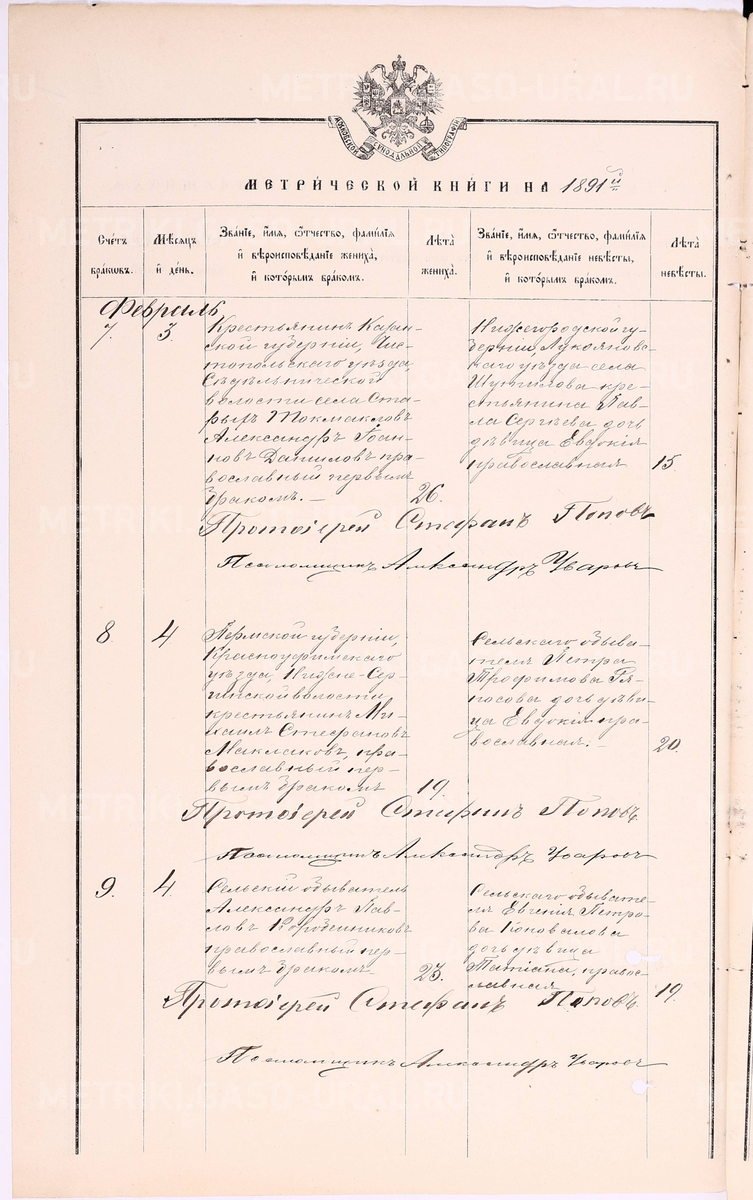 МОСКОВСКОЙ СѴНОДАЛЬНОЙ ТИПОГРАФІИ
МЕТРИ́ЧЕСКОЙ КНИ́ГИ НА 1891й
Сче́тъ бра́кωвъ.
Мѣ́сѧцъ й де́нь.
Зва́нїе, и́мѧ, ѻ́тчество, фами́лїѧ
и҆ вѣроисповѣ́данїе жениха̀,
и҆ кото́рымъ бра́комъ.
Лѣ́та жениха̀.
Зва́нїе, и́мѧ, ѻ́тчество, фами́лїѧ
и҆ вѣроисповѣ́данїе невѣ́сты,
и҆ кото́рымъ бра́комъ.
Лѣ́та невѣ́сты.
Февраль
7.
3.
Крестьянинъ Казан-
ской губерніи, Чис-
топольскаго уѣзда
волости села Ста-
рыхъ Токмаковъ
Александръ Іоан-
новъ Даниловъ пра-
вославный первымъ
бракомъ. —
26.
Нижегородской гу-
берніи, Лукоянов-
скаго уѣзда села
Шутилова кре-
стьянина Пав-
ла Сергѣева дочь
дѣвица Евдокія
православная
15
Протоіерей Стефанъ Поповъ
Псаломщикъ Александръ Уваровъ
8.
4
Пермской губерніи,
Красноуфимскаго
уѣзда, Нижне-Сер-
гинской волости,
крестьянинъ Ми-
хаилъ Стефановъ
Маклаковъ, пра-
вославный, пер-
вымъ бракомъ
19.
Сельскаго обыва-
теля Петра
Трофимова
дочь дѣви-
ца Евдокія пра-
вославная. —
20.
Протоіерей Стефанъ Поповъ
Псаломщикъ Александръ Уваровъ
9.
4.
Сельскій обыватель
Александръ Пав-
ловъ
православный пер-
вымъ бракомъ
23.
Сельскаго обывате-
ля Евгенія Петро-
ва Коновалова
дочь дѣвица
Татіана, правос-
лавная
19.
Протоіерей Стефанъ Поповъ
Псаломщикъ Александръ Уваровъ
METRIKI.GASO-URAL.RU